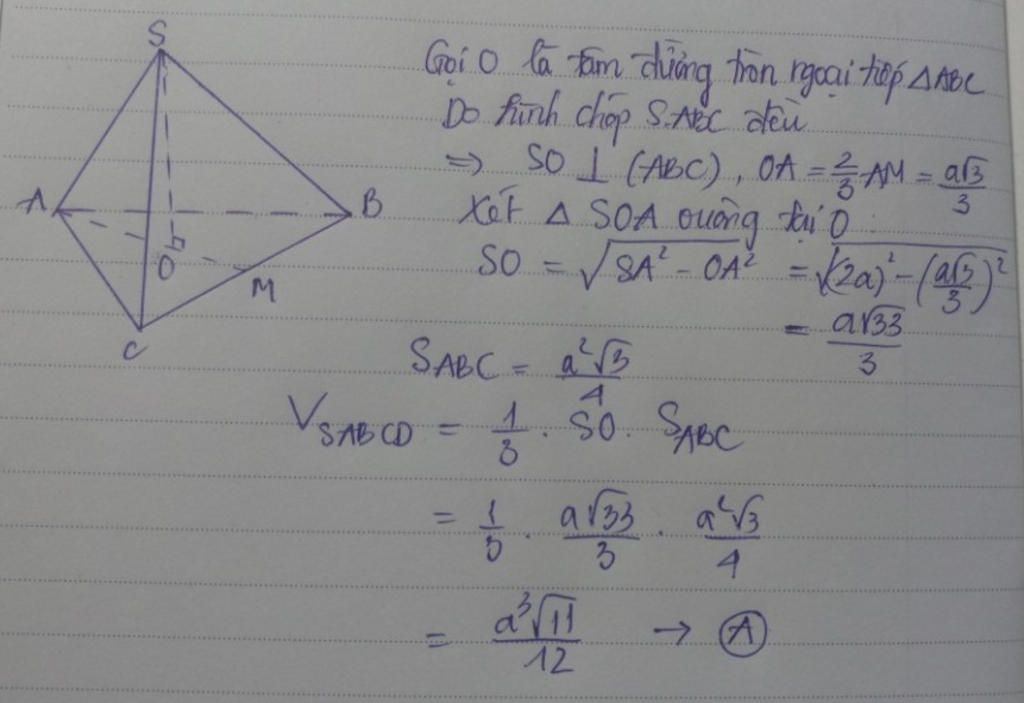 S
Gọi O là tâm đường tròn ngoại tiếp △ABC
Do hình chóp S.ABC đều
⇒ SO ⊥ (ABC), OA = 2/3 AM = a√3/3
A
B
Xét △ SOA vuông tại O :
O
M
SO = √(SA² - OA²) = √((2a)² - (a√3/3)²)
= a√33/3
C
S_ABC = a²√3/4
V_SABCD = 1/3 . SO . S_ABC
= 1/3 . a√33/3 . a²√3/4
= a³√11/12 → Ⓐ